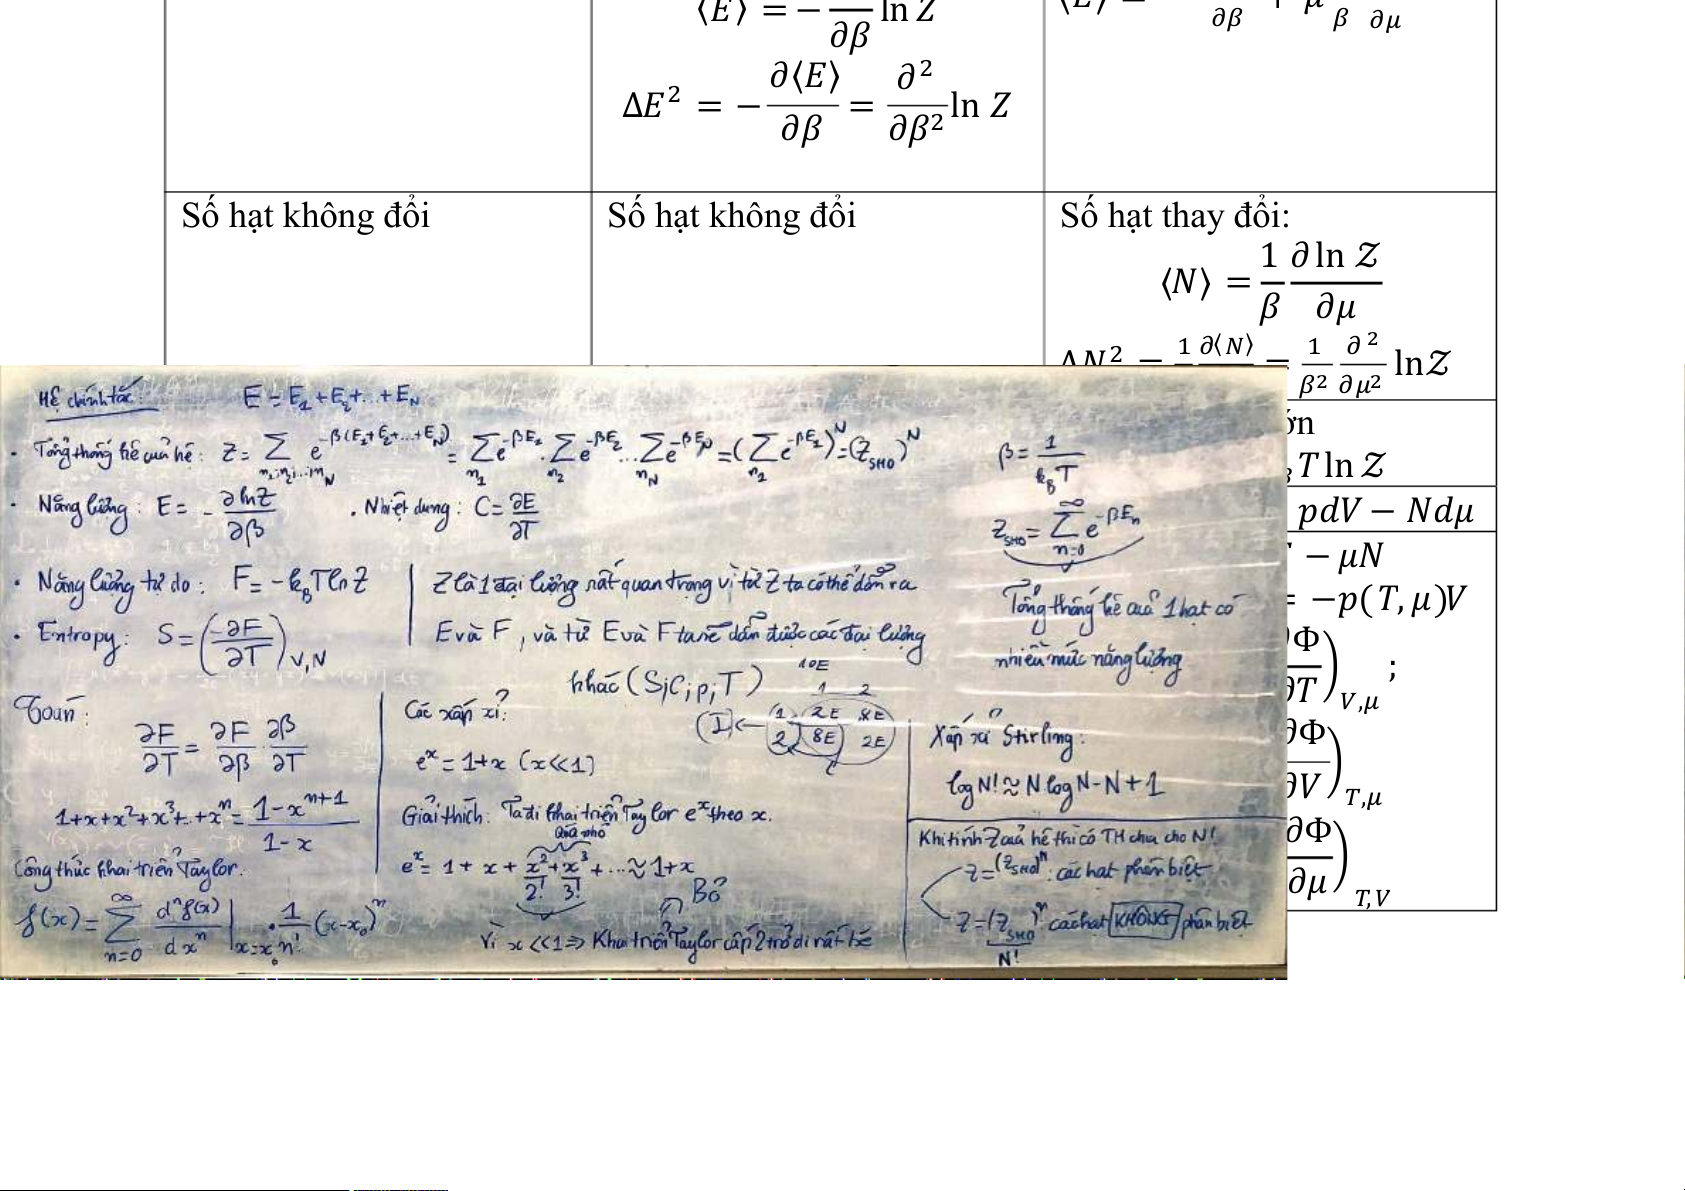 ⟨E⟩ = − ∂/∂β ln Z
ΔE² = − ∂⟨E⟩/∂β = ∂²/∂β² ln Z
Số hạt không đổi
Số hạt không đổi
Số hạt thay đổi:
⟨N⟩ = 1/β ∂ ln 𝒵/∂μ
ΔN² = 1/β ∂⟨N⟩/∂μ = 1/β² ∂²/∂μ² ln𝒵
T ln 𝒵
pdV − Ndμ
− μN
= −p(T, μ)V
∂Φ/∂T)V,μ ;
∂Φ/∂V)T,μ
∂Φ/∂μ)T,V
Hệ chính tắc:
E = E₁ + E₂ + ... + E_N
• Tổng thống kê của hệ: Z = Σ_{n₁;n₂;...;n_N} e^{-β(E₁+E₂+...+E_N)} = Σ_{n₁} e^{-βE₁} . Σ_{n₂} e^{-βE₂} ... Σ_{n_N} e^{-βE_N} = (Σ_{n₁} e^{-βE₁})^N = (Z_SHO)^N
• Năng lượng: E = - ∂lnZ/∂β
• Nhiệt dung: C = ∂E/∂T
• Năng lượng tự do: F = -k_B T ln Z
• Entropy: S = (-∂F/∂T)V,N
Z là 1 đại lượng rất quan trọng vì từ Z ta có thể dẫn ra
E và F, và từ E và F ta sẽ dẫn được các đại lượng
khác (S;C;p;T)
β = 1/k_B T
Z_SHO = Σ_{n=0}^∞ e^{-βE_n}
Tổng thống kê của 1 hạt có
nhiều mức năng lượng
Toán:
∂F/∂T = ∂F/∂β . ∂β/∂T
1+x+x²+x³+..+xⁿ = 1-x^{n+1}/1-x
Công thức khai triển Taylor.
f(x) = Σ_{n=0}^∞ dⁿf(x)/dxⁿ |_{x=x₀} . 1/n! (x-x₀)ⁿ
Các xấp xỉ:
eˣ = 1+x (x<<1)
Giải thích: Ta đi khai triển Taylor eˣ theo x.
Quá nhỏ
eˣ = 1 + x + x²/2! + x³/3! + ... ≈ 1+x
Bỏ
Vì x<<1 ⇒ Khai triển Taylor cấp 2 trở đi rất bé
10E
1 2
(I) ← 1 2E 8E
2 8E 2E
Xấp xỉ Stirling:
log N! ≈ N log N - N + 1
Khi tính Z của hệ thì có TH chia cho N!
Z = (Z_SHO)ᴺ: các hạt phân biệt
Z = (Z_SHO)ᴺ/N! các hạt KHÔNG phân biệt